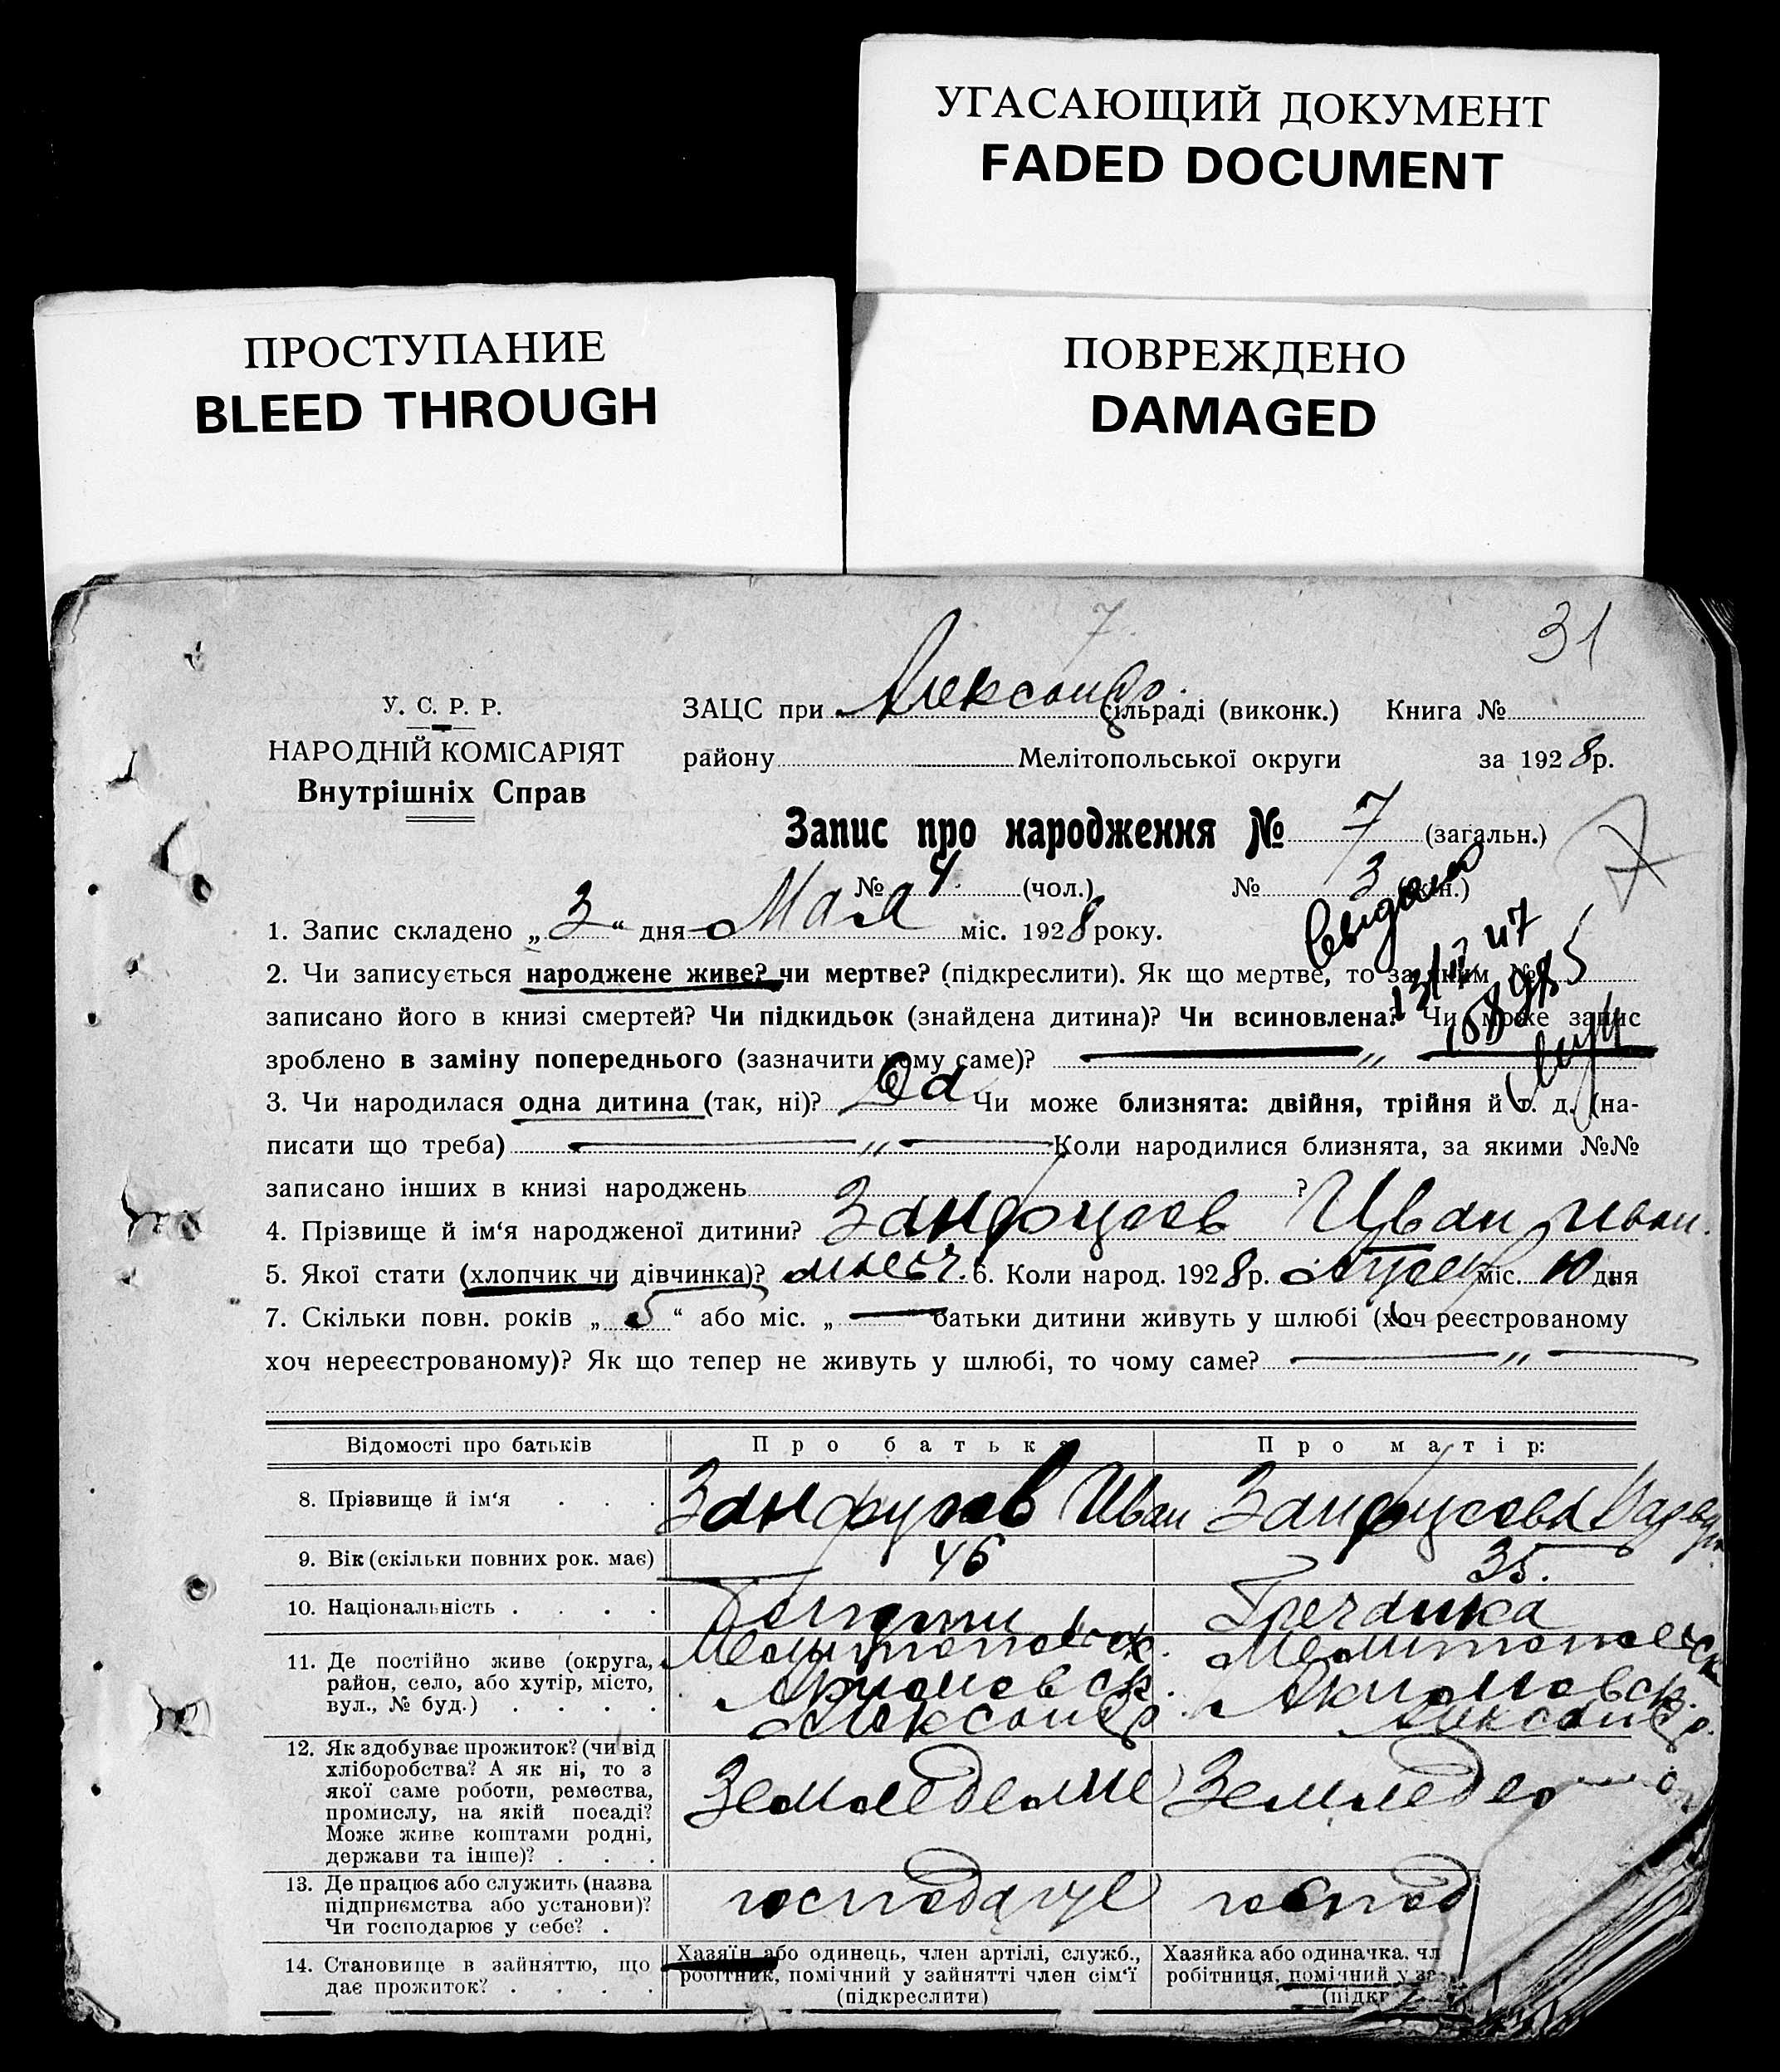 УГАСАЮЩИЙ ДОКУМЕНТ
FADED DOCUMENT
ПРОСТУПАНИЕ
BLEED THROUGH
ПОВРЕЖДЕНО
DAMAGED
7
31
У. С. Р. Р.
НАРОДНІЙ КОМІСАРІЯТ
Внутрішніх Справ
ЗАЦС при Александр. сільраді (виконк.) Книга №
району Мелітопольської округи за 1928 р.
Запис про народження № 7 (загальн.)
7
№ 4. (чол.) № 3 (жін.)
1. Запис складено „3“ дня Мая міс. 1928 року.
2. Чи записується народжене живе? чи мертве? (підкреслити). Як що мертве, то за яким №
записано його в книзі смертей? Чи підкидьок (знайдена дитина)? Чи всиновлена? Чи може запис
зроблено в заміну попереднього (зазначити кому саме)? „
3. Чи народилася одна дитина (так, ні)? Чи може близнята: двійня, трійня й т. д. (на-
писати що треба) „ Коли народилися близнята, за якими №№
записано інших в книзі народжень ?
4. Прізвище й ім'я народженої дитини? Иван Иван.
5. Якої стати (хлопчик чи дівчинка)? 6. Коли народ. 1928 р. міс. 10 дня
7. Скільки повн. років „5“ або міс. „ “ батьки дитини живуть у шлюбі (хоч реєстрованому
хоч нереєстрованому)? Як що тепер не живуть у шлюбі, то чому саме? „
Відомості про батьків Про батька Про матір:
8. Прізвище й ім'я . . . Иван
9. Вік (скільки повних рок. має) 46 35.
10. Національність . . . . Гречанка
11. Де постійно живе (округа, Мелитопольск. Мелитопольск
район, село, або хутір, місто, Акимовск. Акимовск.
вул., № буд.) . . . . Александр. Александр.
12. Як здобуває прожиток? (чи від
хліборобства? А як ні, то з
якої саме роботи, ремества, Земледелие
промислу, на якій посаді?
Може живе коштами родні,
держави та інше)? . . .
13. Де працює або служить (назва
підприємства або установи)? господарує господ
Чи господарює у себе? .
14. Становище в зайняттю, що Хазяїн або одинець, член артілі, служб., Хазяйка або одиначка, чл
дає прожиток? . . . . робітник, помічний у зайнятті член сім'ї робітниця, помічний у за
(підкреслити) (підкр